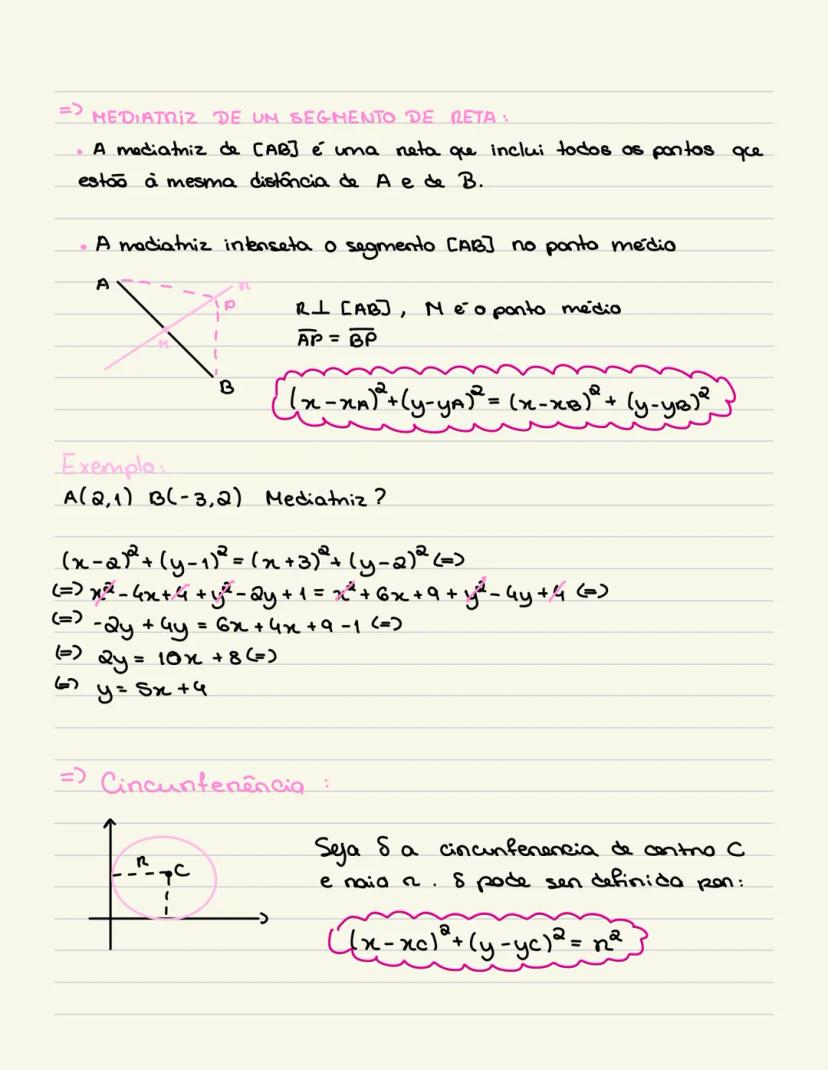 => MEDIATRIZ DE UM SEGMENTO DE RETA:
. A mediatriz de [AB] é uma reta que inclui todos os pontos que
estão à mesma distância de A e de B.
. A mediatriz interseta o segmento [AB] no ponto médio
A
r
P
R⊥ [AB], M é o ponto médio
M
AP = BP
B
(x-xA)²+(y-yA)² = (x-xB)² + (y-yB)²
Exemplo:
A(2,1) B(-3,2) Mediatriz?
(x-2)²+(y-1)² = (x+3)²+(y-2)² (=)
(=) x²-4x+4+y²-2y+1 = x²+6x+9+y²-4y+4 (=)
(=) -2y+4y = 6x+4x+9-1 (=)
(=) 2y = 10x+8 (=)
(=) y = 5x+4
=> Circunferência:
R
C
Seja δ a circunferencia de centro C
e raio r. δ pode ser definida por:
(x-xC)²+(y-yC)² = r²